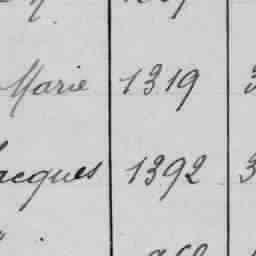 Marie 1319 3
acques 1392 3